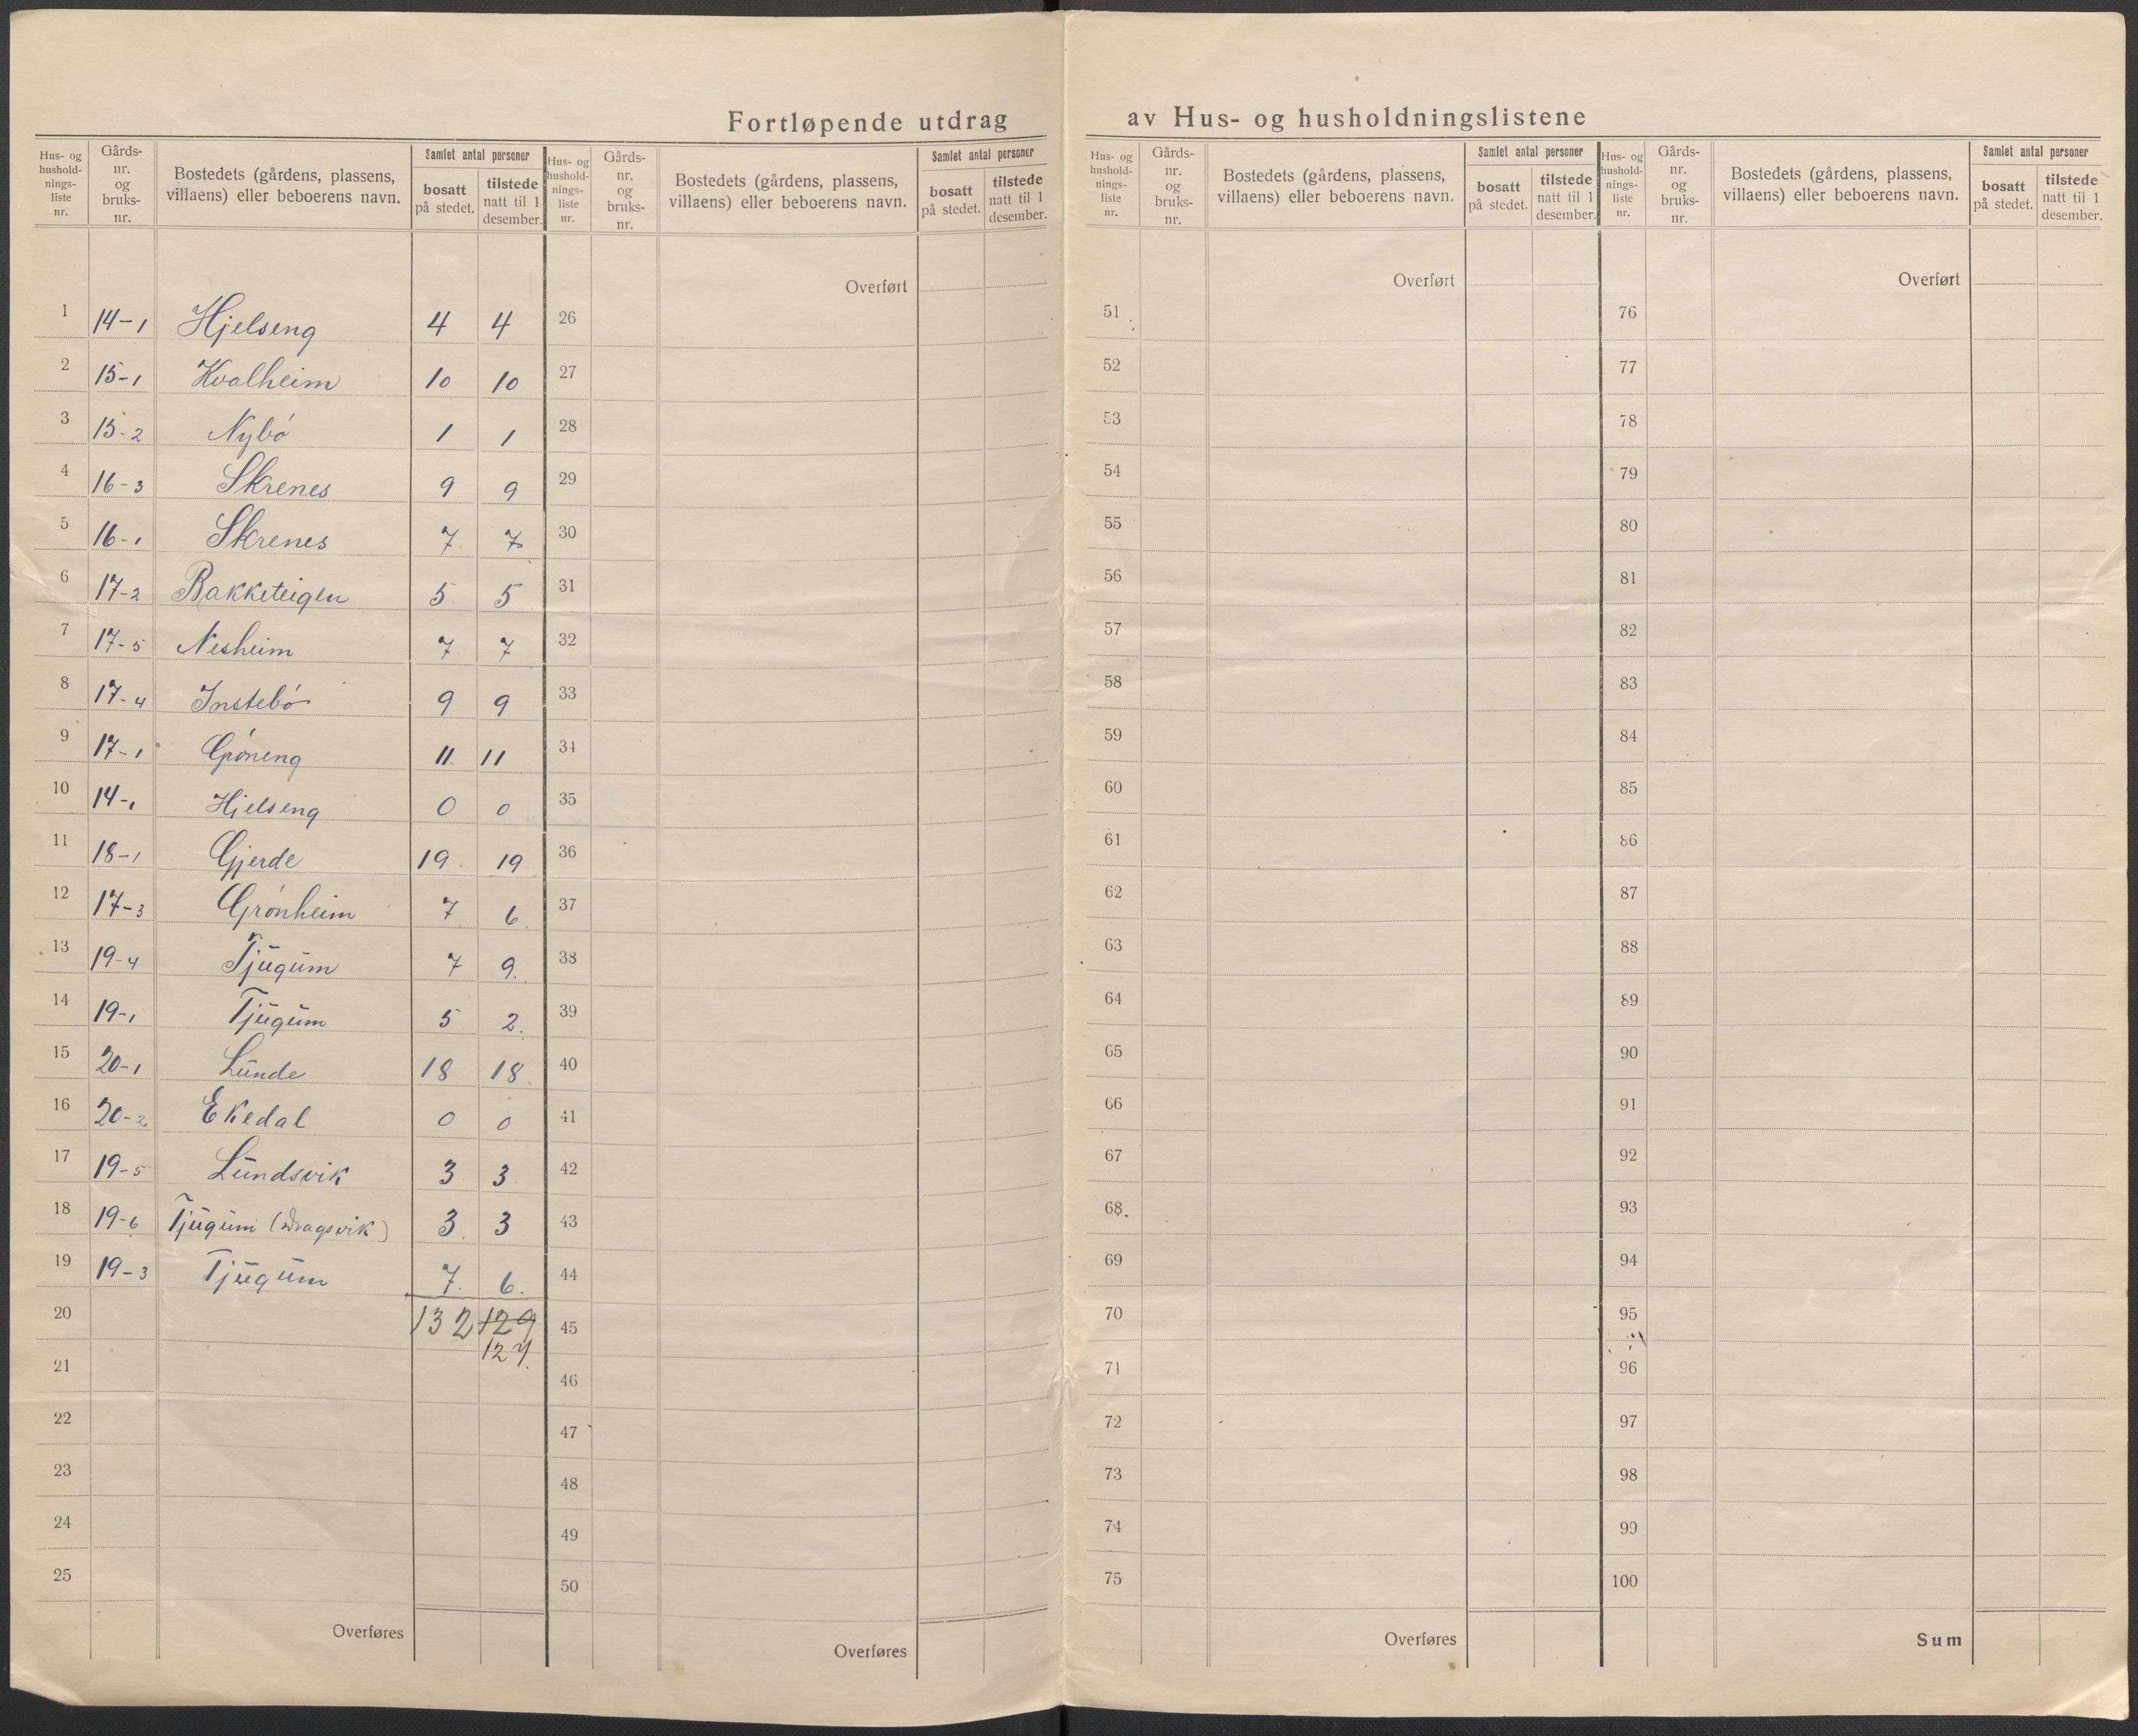 Fortløpende utdrag av Hus- og husholdningslistene
Hus- og hushold- nings- liste nr. Gårds- nr. og bruks- nr. Bostedets (gårdens, plassens, villaens) eller beboerens navn. Samlet antal personer bosatt på stedet. tilstede natt til 1 desember.
1 14-1 Hjelseng 4 4
2 15-1 Kvalheim 10 10
3 15-2 Nybó 1 1
4 16-3 Skrenes 9 9
5 16-1 Skrenes 7 7
6 17-2 Bakketeigen 5 5
7 17-5 Nesheim 7 7
8 17-4 Instebó 9 9
9 17-1 11 11
10 14-1 Hjelseng 0 0
11 18-1 Gjerde 19 19
12 17-3 Grónheim 7 6
13 19-4 Tjugum 7 9
14 19-1 Tjugum 5 2
15 20-1 Lunde 18 18
16 20-2 Ekedal 0 0
17 19-5 Lundsvik 3 3
18 19-6 Tjugum (Dragsvik) 3 3
19 19-3 Tjugum 7 6
20 132 129
127
21
22
23
24
25
Overføres
Hus- og hushold- nings- liste nr. Gårds- nr. og bruks- nr. Bostedets (gårdens, plassens, villaens) eller beboerens navn. Samlet antal personer bosatt på stedet. tilstede natt til 1 desember.
Overført
26
27
28
29
30
31
32
33
34
35
36
37
38
39
40
41
42
43
44
45
46
47
48
49
50
Overføres
Hus- og hushold- nings- liste nr. Gårds- nr. og bruks- nr. Bostedets (gårdens, plassens, villaens) eller beboerens navn. Samlet antal personer bosatt på stedet. tilstede natt til 1 desember.
Overført
51
52
53
54
55
56
57
58
59
60
61
62
63
64
65
66
67
68
69
70
71
72
73
74
75
Overføres
Hus- og hushold- nings- liste nr. Gårds- nr. og bruks- nr. Bostedets (gårdens, plassens, villaens) eller beboerens navn. Samlet antal personer bosatt på stedet. tilstede natt til 1 desember.
Overført
76
77
78
79
80
81
82
83
84
85
86
87
88
89
90
91
92
93
94
95
96
97
98
99
100
Sum